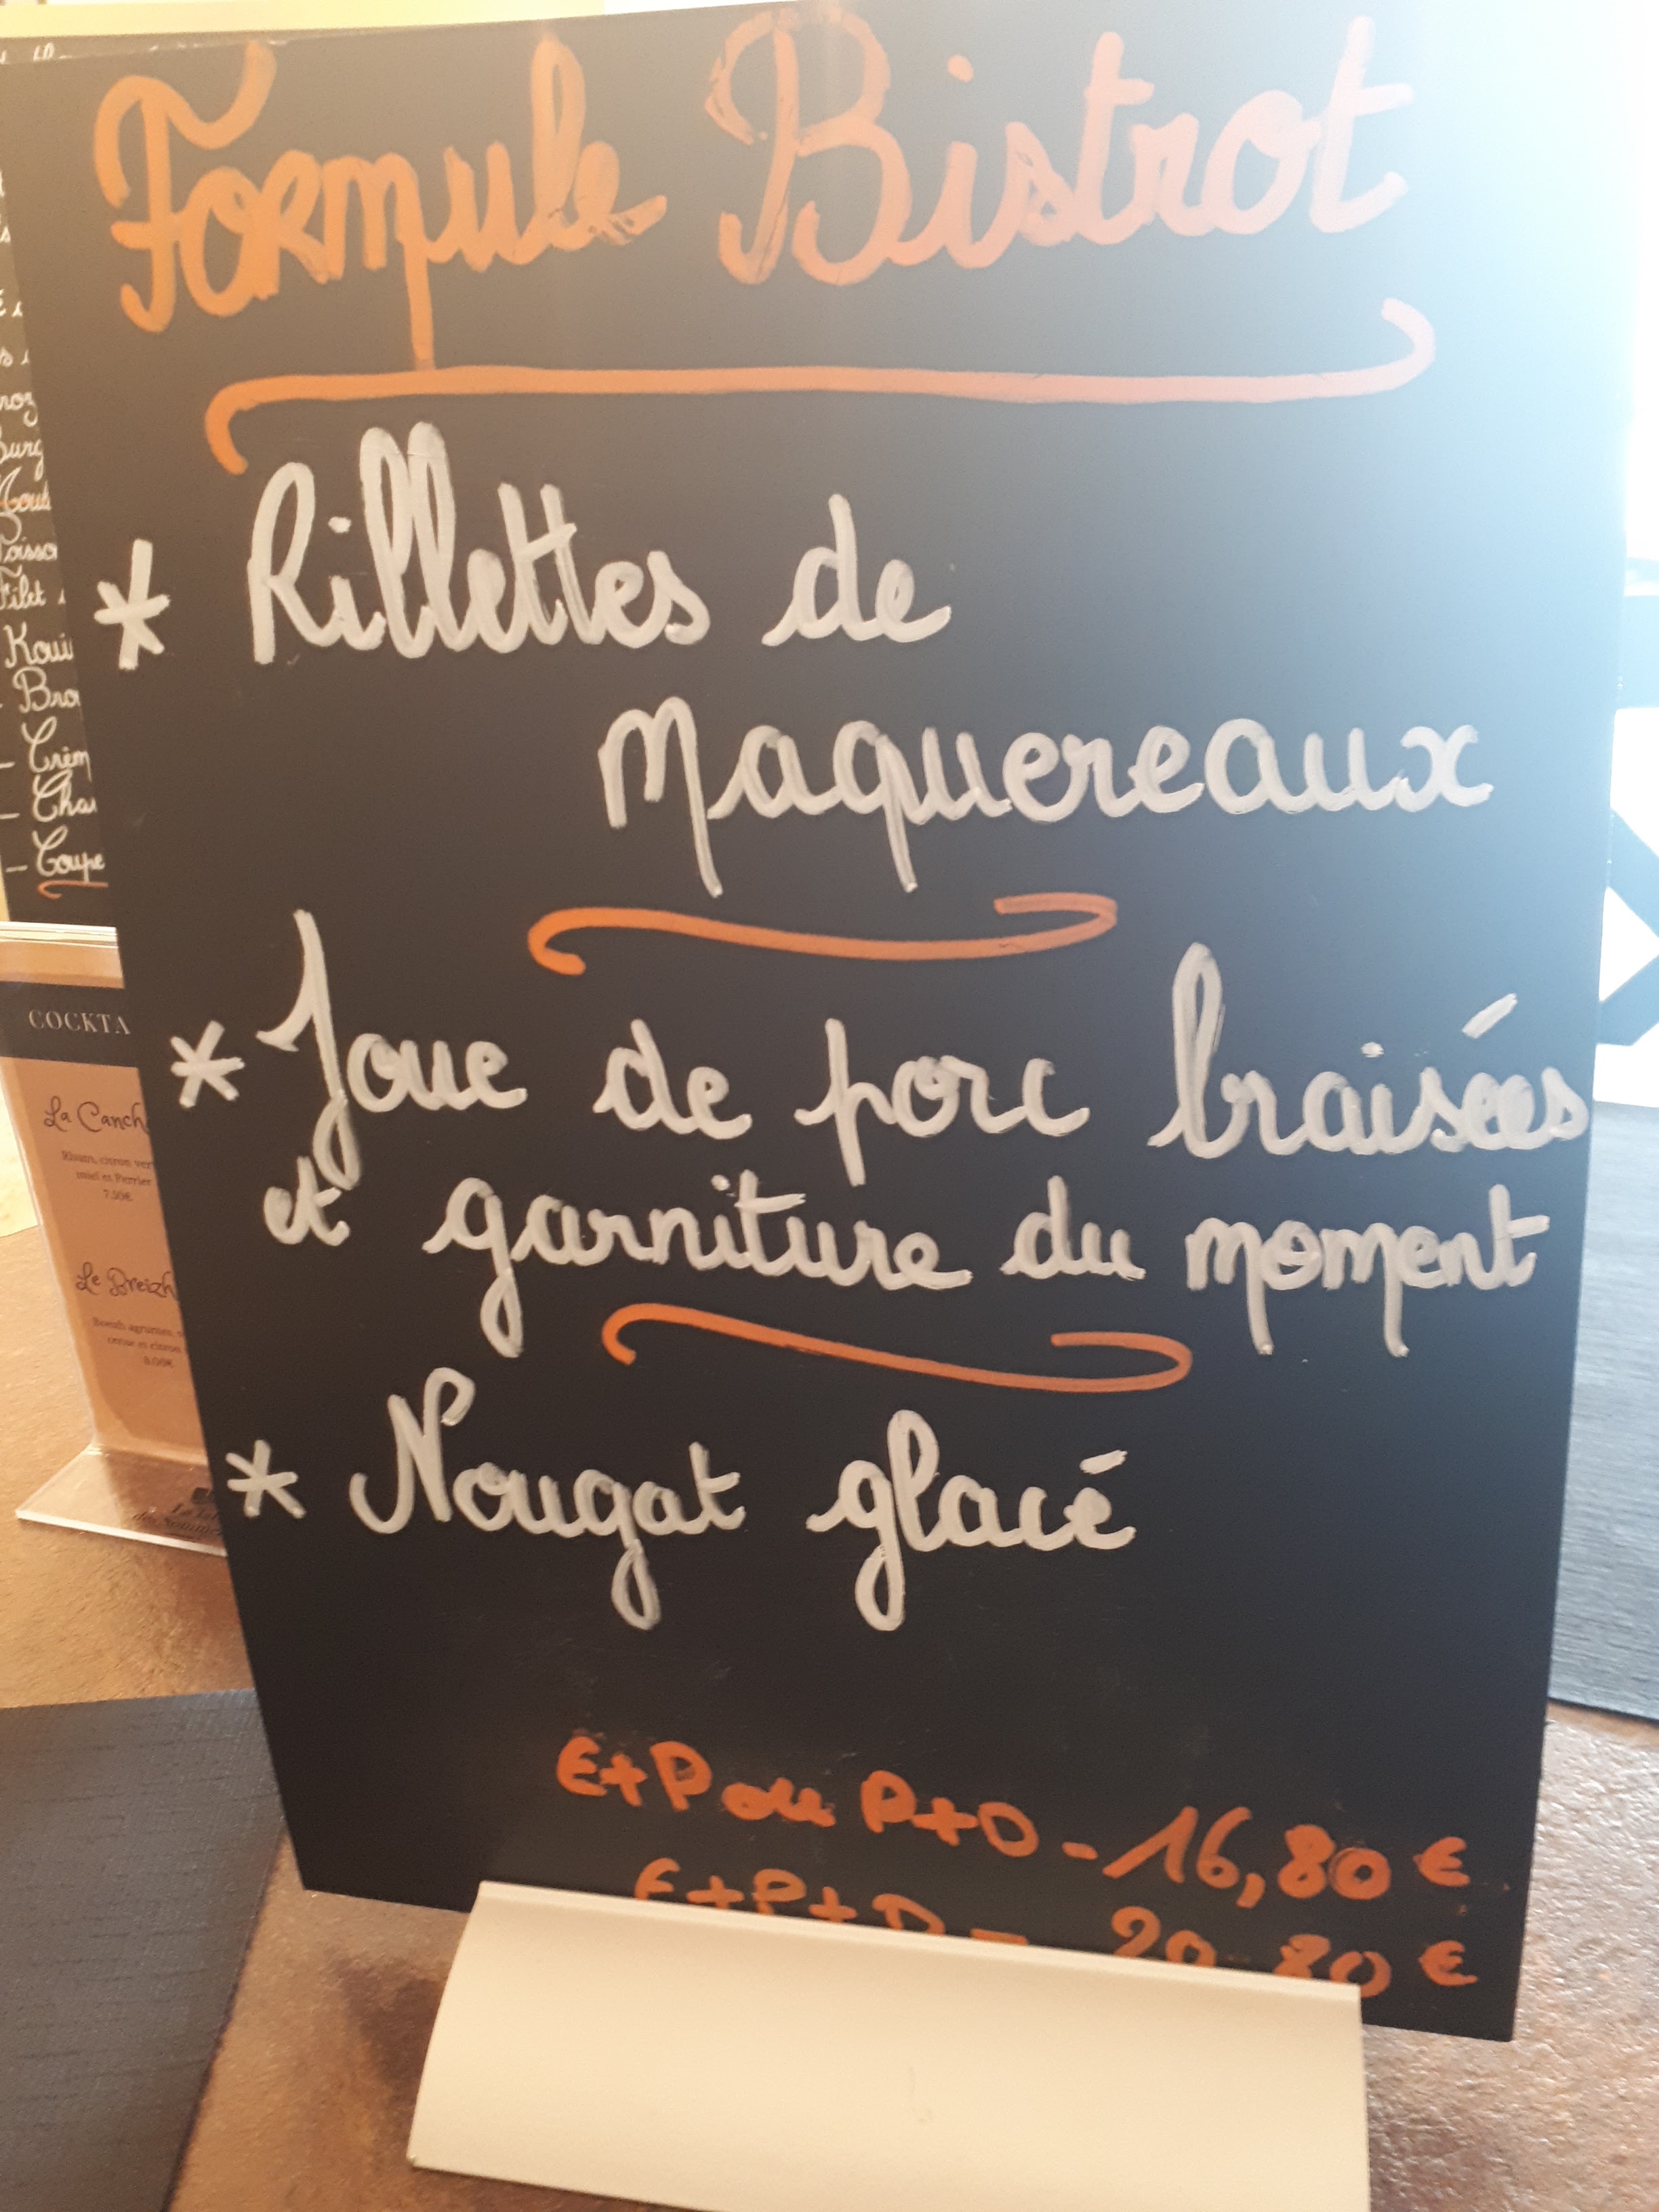 Formule Bistrot
* Rillettes de
Maquereaux
* Joue de porc braisées
et garniture du moment
* Nougat glacé
E+P ou P+D - 16,80 €
E+P+D - 20,80 €
COCKTA
La Canch
Rhum, citron ver
miel et Perrier
7.50€
Le Breizh
8.00€
Filet
Koui
Bro
- Crèm
- Cha
- Coupe